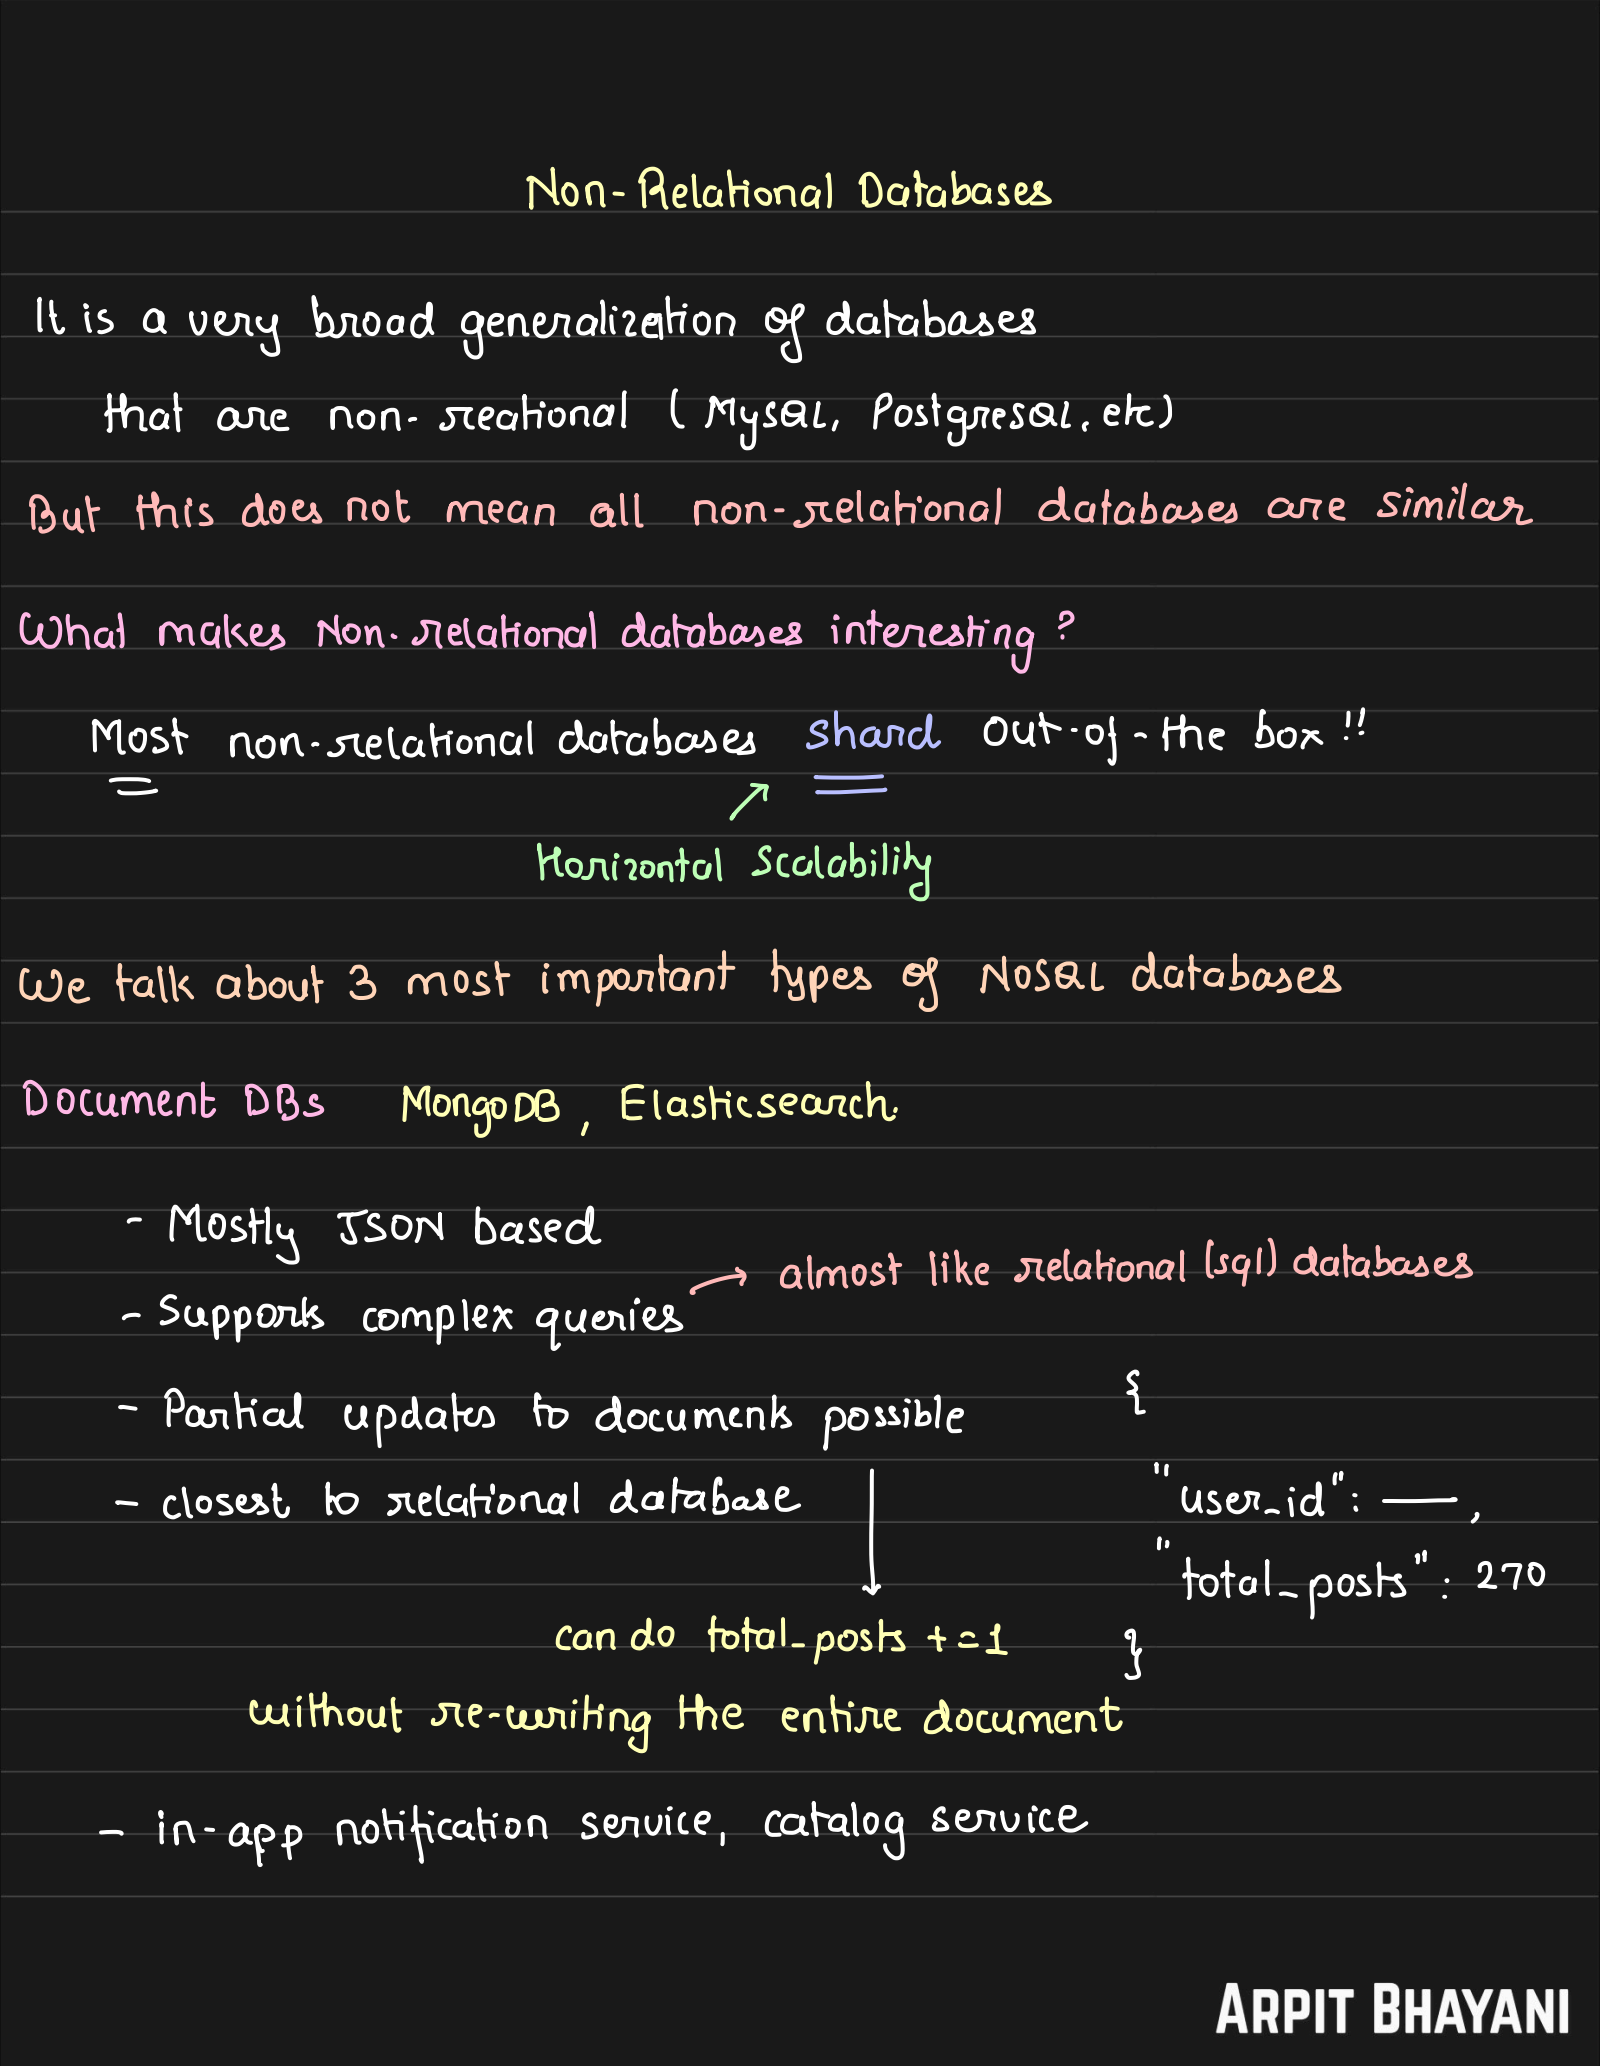 Non-Relational Databases
It is a very broad generalization of databases
that are non-reational (MySQL, PostgreSQL, etc)
But this does not mean all non-relational databases are similar
What makes Non-relational databases interesting?
Most non-relational databases shard out-of-the box !!
Horizontal Scalability
We talk about 3 most important types of NoSQL databases
Document DBs MongoDB, Elasticsearch.
- Mostly JSON based
almost like relational (sql) databases
- Supports complex queries
- Partial updates to documents possible
- closest to relational database
{
"user_id": —,
"total_posts": 270
}
can do total_posts +=1
without re-writing the entire document
- in-app notification service, catalog service
ARPIT BHAYANI